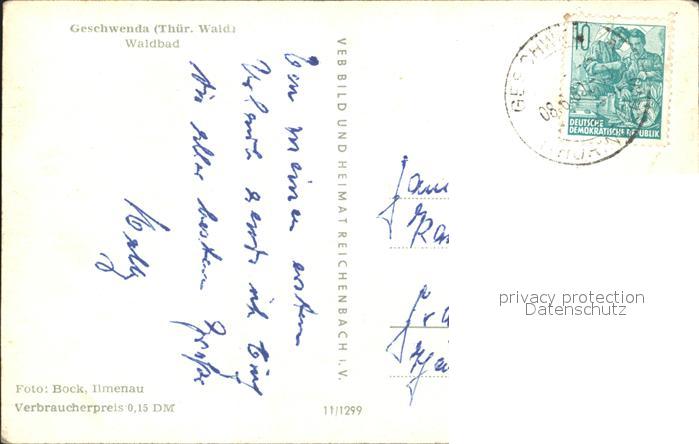 Geschwenda (Thür. Wald)
Waldbad
Von meinen ersten
Urlaub sende ich Euch
die aller besten Grüße
VEB BILD UND HEIMAT REICHENBACH i. V.
10
DEUTSCHE
DEMOKRATISCHE REPUBLIK
privacy protection
Datenschutz
Foto: Bock, Ilmenau
Verbraucherpreis 0,15 DM
11/1299